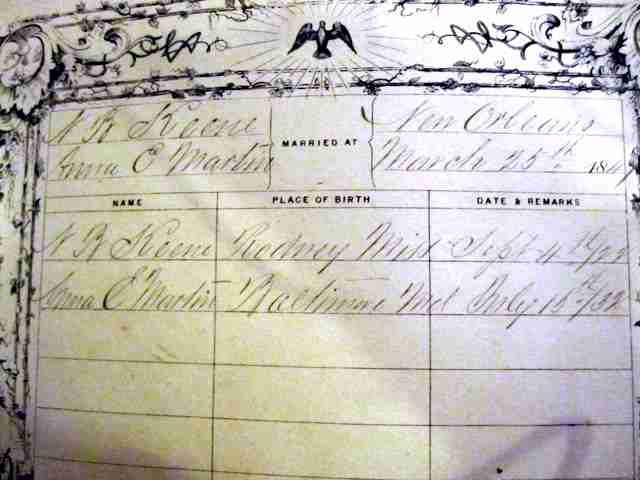 N R Keene
Anna E Martin
MARRIED AT
New Orleans
March 25th 184
NAME PLACE OF BIRTH DATE & REMARKS
N R Keene Rodney Miss Sept 11th
Anna E Martin Baltimore Md July 15th/32